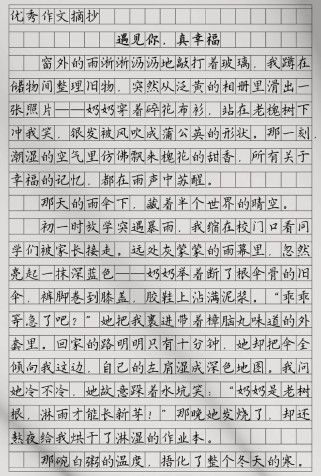 优秀作文摘抄
遇见你，真幸福
窗外的雨淅淅沥沥地敲打着玻璃，我蹲在
储物间整理旧物，突然从泛黄的相册里滑出一
张照片——奶奶穿着碎花布衫，站在老槐树下
冲我笑，银发被风吹成蒲公英的形状。那一刻，
潮湿的空气里仿佛飘来槐花的甜香，所有关于
幸福的记忆，都在雨声中苏醒。
那天的雨伞下，藏着半个世界的晴空。
初一时放学突遇暴雨，我缩在校门口看同
学们被家长接走。远处灰蒙蒙的雨幕里，忽然
亮起一抹深蓝色——奶奶举着断了根伞骨的旧
伞，裤脚卷到膝盖，胶鞋上沾满泥浆。“乖乖
等急了吧？”她把我裹进带着樟脑丸味道的外
套里。回家的路明明只有十分钟，她却把伞全
倾向我这边，自己的左肩湿成深色地图。我问
她冷不冷，她故意踩着水坑笑：“奶奶是老树
根，淋雨才能长新芽！”那晚她发烧了，却还
熬夜给我烘干了淋湿的作业本。
那碗白粥的温度，捂化了整个冬天的寒。